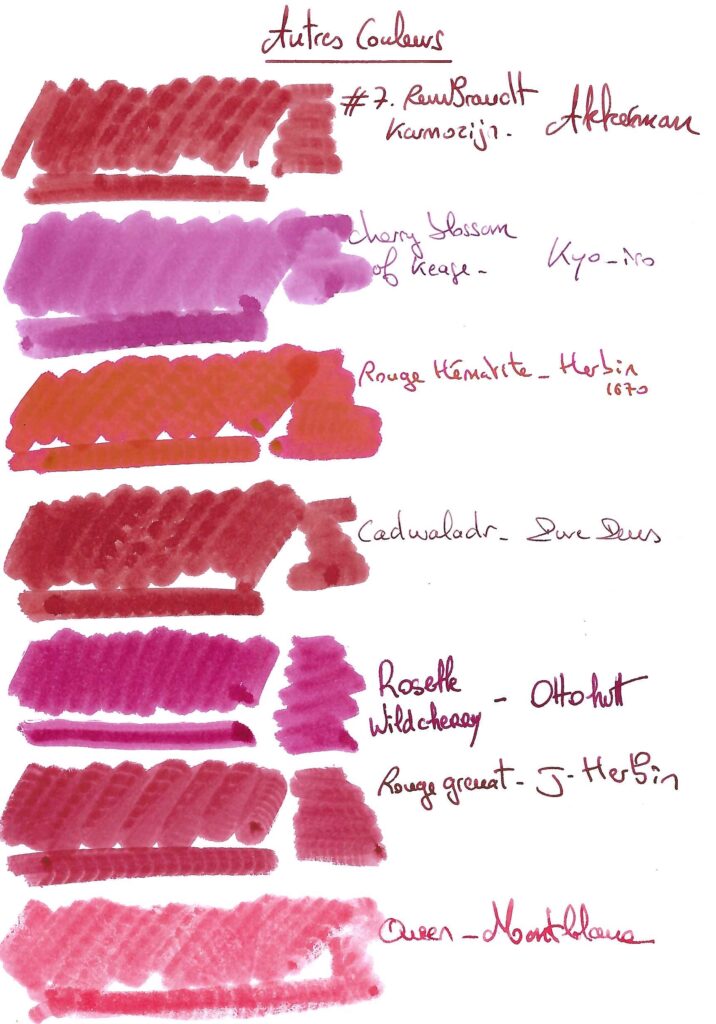 Autres Couleurs
#7. RemBrandt Akkerman
Karmozijn.
Cherry blossom
of Keage - Kyo-iro
Rouge Hématite - Herbin
1670
Cadwaladr -
Rosette
Wildcherry - Ottohutt
Rouge grenat - J-Herbin
Queen - Montblanc